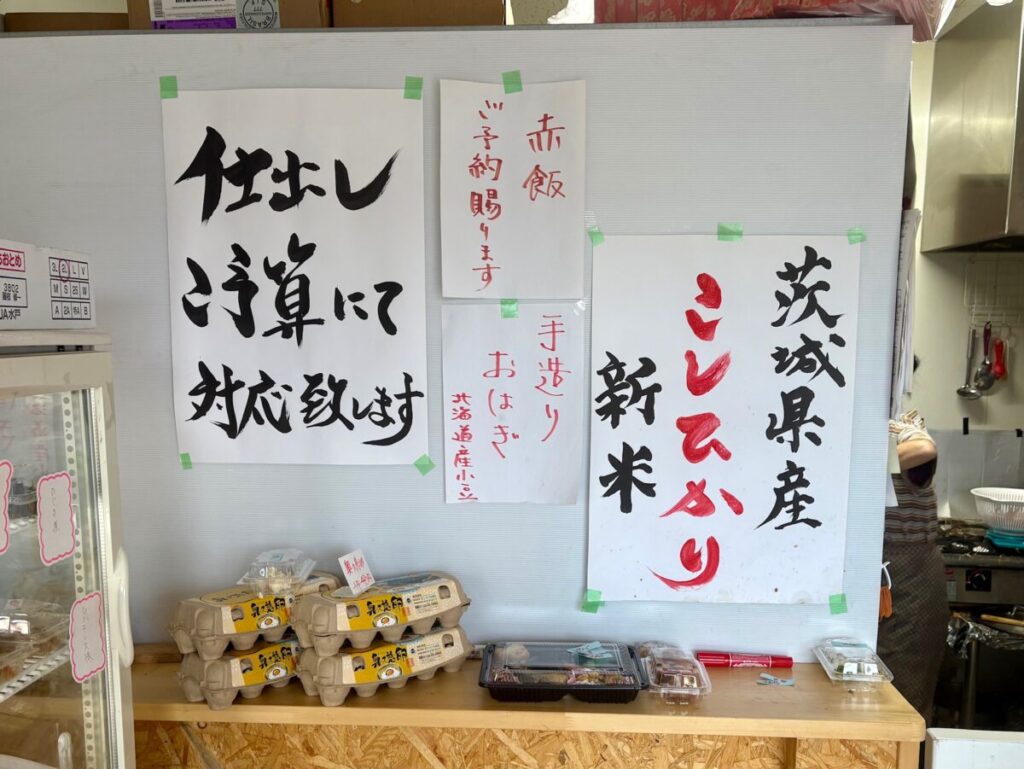 仕出し
ご予算にて
対応致します
赤飯
ご予約賜ります
手造り
おはぎ
北海道産小豆
茨城県産
こしひかり
新米
おとめ
3L 2L L V
M S 2S W
A 2A 特A B
3802
JA水戸
BRASIL